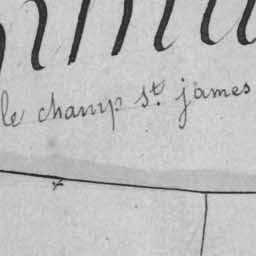 le champ St. james